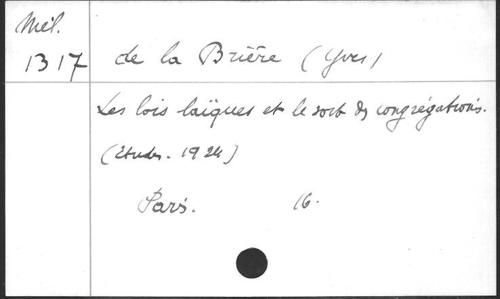 Mél.
1317
de la Brière (Yves)
Les lois laïques et le sort des congrégations.
(Etudes. 1924)
Paris.
16.